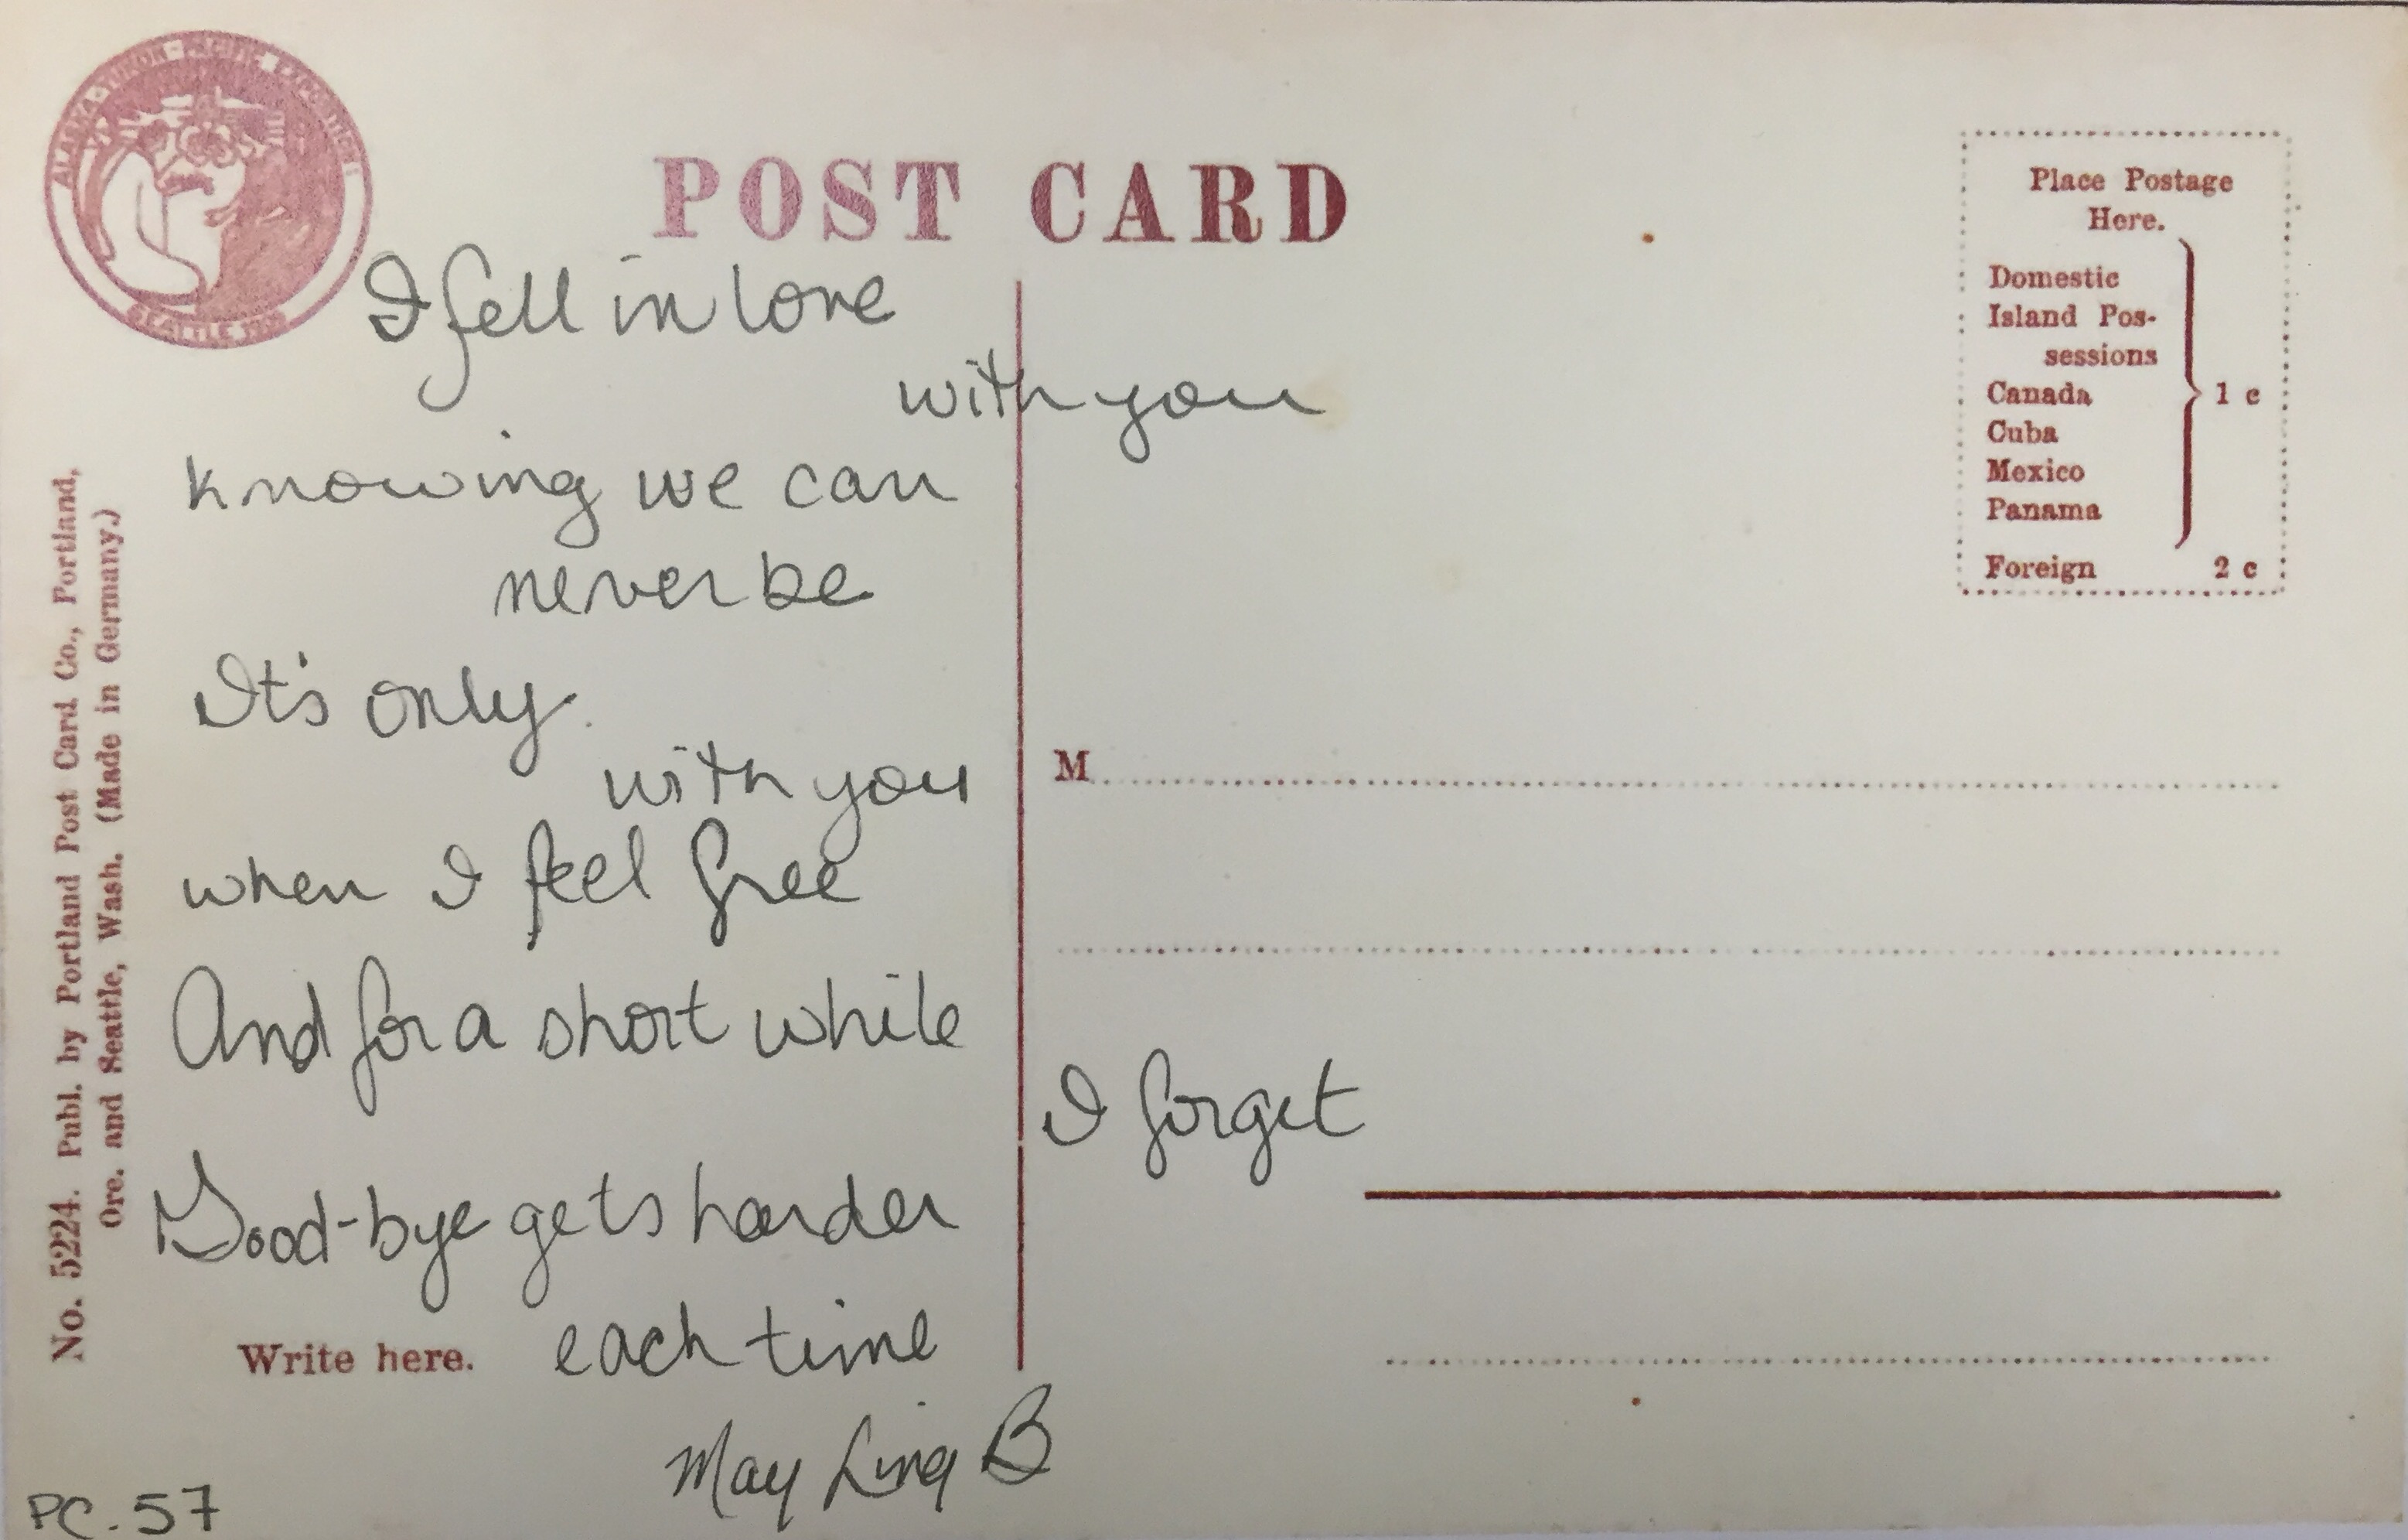 ALASKA YUKON PACIFIC EXPOSITION
SEATTLE 1909
POST CARD
Place Postage
Here.
Domestic
Island Pos-
sessions
Canada
Cuba
Mexico
Panama
1 c
Foreign 2 c
I fell in love
with you
knowing we can
never be
It's only
with you
when I feel free
And for a short while
I forget
Good-bye gets harder
each time
May Ling B
M
Write here.
No. 5224. Publ. by Portland Post Card Co., Portland,
Ore. and Seattle, Wash. (Made in Germany.)
PC.57